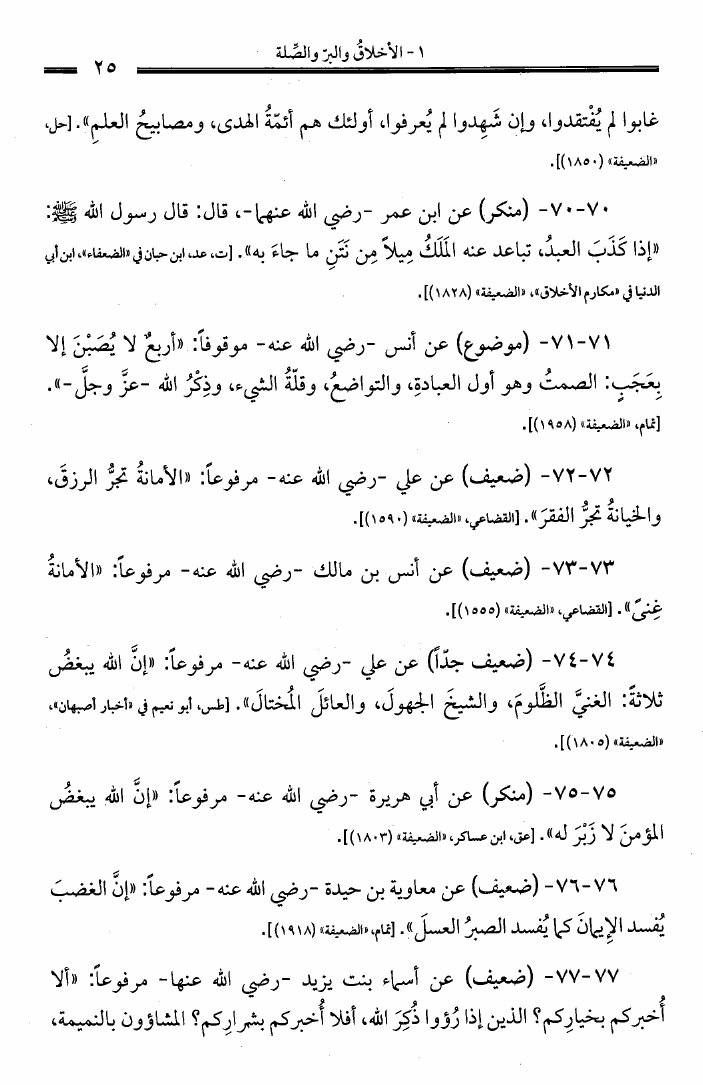 ١- الأخلاقُ والبرّ والصِّلة
٢٥
غابوا لم يُفْتقدوا، وإن شَهِدوا لم يُعرفوا، أولئك هم أئمّةُ الهدى، ومصابيحُ العلمِ». [حل،
«الضعيفة» (١٨٥٠)].
٧٠-٧٠- (منكر) عن ابن عمر -رضي الله عنهما-، قال: قال رسول الله ﷺ:
«إذا كَذَبَ العبدُ، تباعد عنه المَلَكُ مِيلاً مِن نَتَنِ ما جاءَ به». [ت، عد، ابن حبان في «الضعفاء»، ابن أبي
الدنيا في «مكارم الأخلاق»، «الضعيفة» (١٨٢٨)].
٧١-٧١- (موضوع) عن أنس -رضي الله عنه- موقوفاً: «أربعٌ لا يُصَبْنَ إلا
بِعَجَبٍ: الصمتُ وهو أول العبادةِ، والتواضعُ، وقلّةُ الشيء، وذِكْرُ الله -عزَّ وجلَّ-».
[تمام، «الضعيفة» (١٩٥٨)].
٧٢-٧٢- (ضعيف) عن علي -رضي الله عنه- مرفوعاً: «الأمانةُ تجرُّ الرزقَ،
والخيانةُ تجرُّ الفقرَ». [القضاعي، «الضعيفة» (١٥٩٠)].
٧٣-٧٣- (ضعيف) عن أنس بن مالك -رضي الله عنه- مرفوعاً: «الأمانةُ
غِنىً». [القضاعي، «الضعيفة» (١٥٥٥)].
٧٤-٧٤- (ضعيف جدّاً) عن علي -رضي الله عنه- مرفوعاً: «إنَّ الله يبغضُ
ثلاثةً: الغنيَّ الظَّلومَ، والشيخَ الجهولَ، والعائلَ المُختالَ». [طس، أبو نعيم في «أخبار أصبهان»،
«الضعيفة» (١٨٠٥)].
٧٥-٧٥- (منكر) عن أبي هريرة -رضي الله عنه- مرفوعاً: «إنَّ الله يبغضُ
المؤمنَ لا زَبْرَ له». [عق، ابن عساكر، «الضعيفة» (١٨٠٣)].
٧٦-٧٦- (ضعيف) عن معاوية بن حيدة -رضي الله عنه- مرفوعاً: «إنَّ الغضبَ
يُفسد الإيمانَ كما يُفسد الصبرُ العسلَ». [تمام، «الضعيفة» (١٩١٨)].
٧٧-٧٧- (ضعيف) عن أسماء بنت يزيد -رضي الله عنها- مرفوعاً: «ألا
أُخبركم بخيارِكم؟ الذين إذا رُؤوا ذُكِرَ الله، أفلا أُخبركم بشرارِكم؟ المشاؤون بالنميمة،